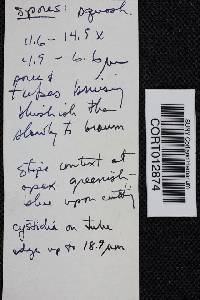 Spores: Squash.
11.6 - 14.9 x
4.9 - 6.6 µm
pores &
tubes bruising
bluish then
slowly to brown
stipe context at
apex greenish-
blue upon cutting
cystidia on tube
edge up to 18.9 µm
CORT012874